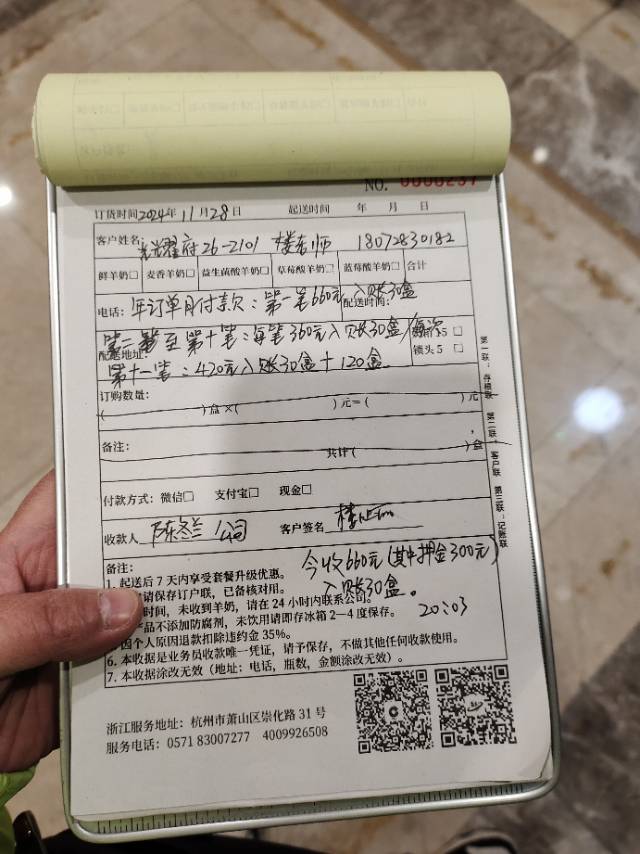 NO. 0000237
订货时间 2024年 11月 28日 起送时间 年 月 日
客户姓名: 光耀府26-2101 楼老师 18072830182
鲜羊奶□ 麦香羊奶□ 益生菌酸羊奶□ 草莓酸羊奶□ 蓝莓酸羊奶□ 合计
电话: 年订单月付款:第一笔660元入账30盒
配送时间:
第二笔至第十笔:每笔360元入账30盒/每次
配送地址:
5 □
锁头 5 □
第十一笔:420元入账30盒+120盒
订购数量:
( )盒×( )元=( )元
备注:
共计( )盒
付款方式: 微信□ 支付宝□ 现金□
收款人 陈冬兰 公司 客户签名
备注:
今收660元(其中押金300元)
入账30盒。
20:03
1. 起送后 7 天内享受套餐升级优惠。
请保存订户联,已备核对用。
时间,未收到羊奶,请在 24 小时内联系公司。
产品不添加防腐剂,未饮用请即存冰箱 2—4 度保存。
因个人原因退款扣除违约金 35%。
6. 本收据是业务员收款唯一凭证,请予保存,不做其他任何收款使用。
7. 本收据涂改无效(地址:电话,瓶数,金额涂改无效)。
浙江服务地址:杭州市萧山区崇化路 31 号
服务电话:0571 83007277 4009926508
第一联:存根联 第二联 客户联 第三联:记账联